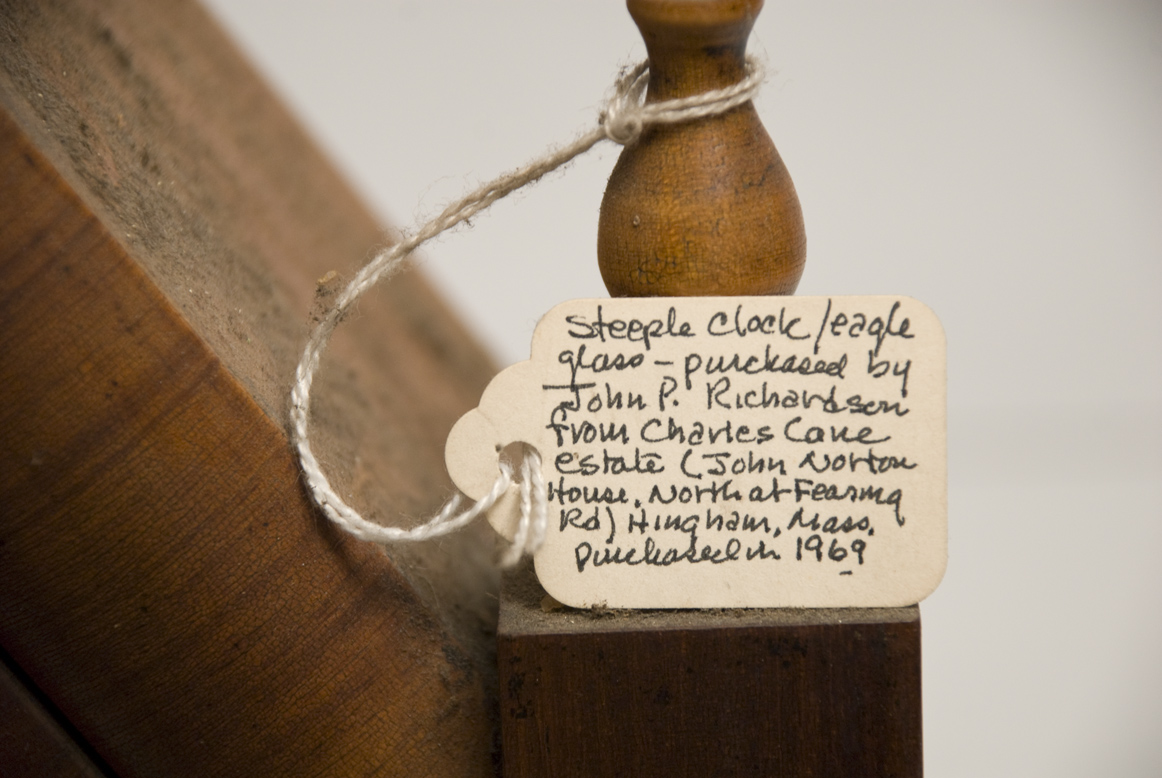 Steeple Clock/eagle
glass – purchased by
John P. Richardson
from Charles Cane
estate (John Norton
House, North at Fearing
Rd) Hingham, Mass.
Purchased in 1969